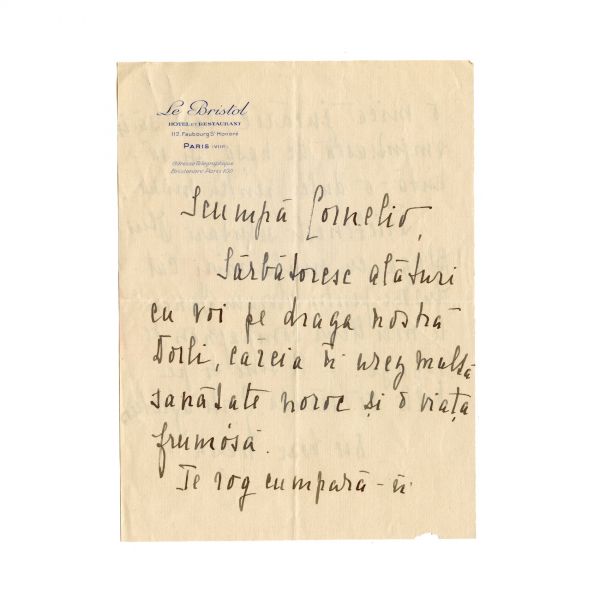 Le Bristol
HOTEL ET RESTAURANT
112, Faubourg St Honoré
PARIS (VIIIe)
Adresse Télégraphique
Bristotene Paris 100
Scumpă Cornelio,
Sărbătoresc alături
cu voi pe draga nostră
Dorli, căreia îi urez multă
sanătate noroc și o viață
frumósă.
Te rog cumpară-îi